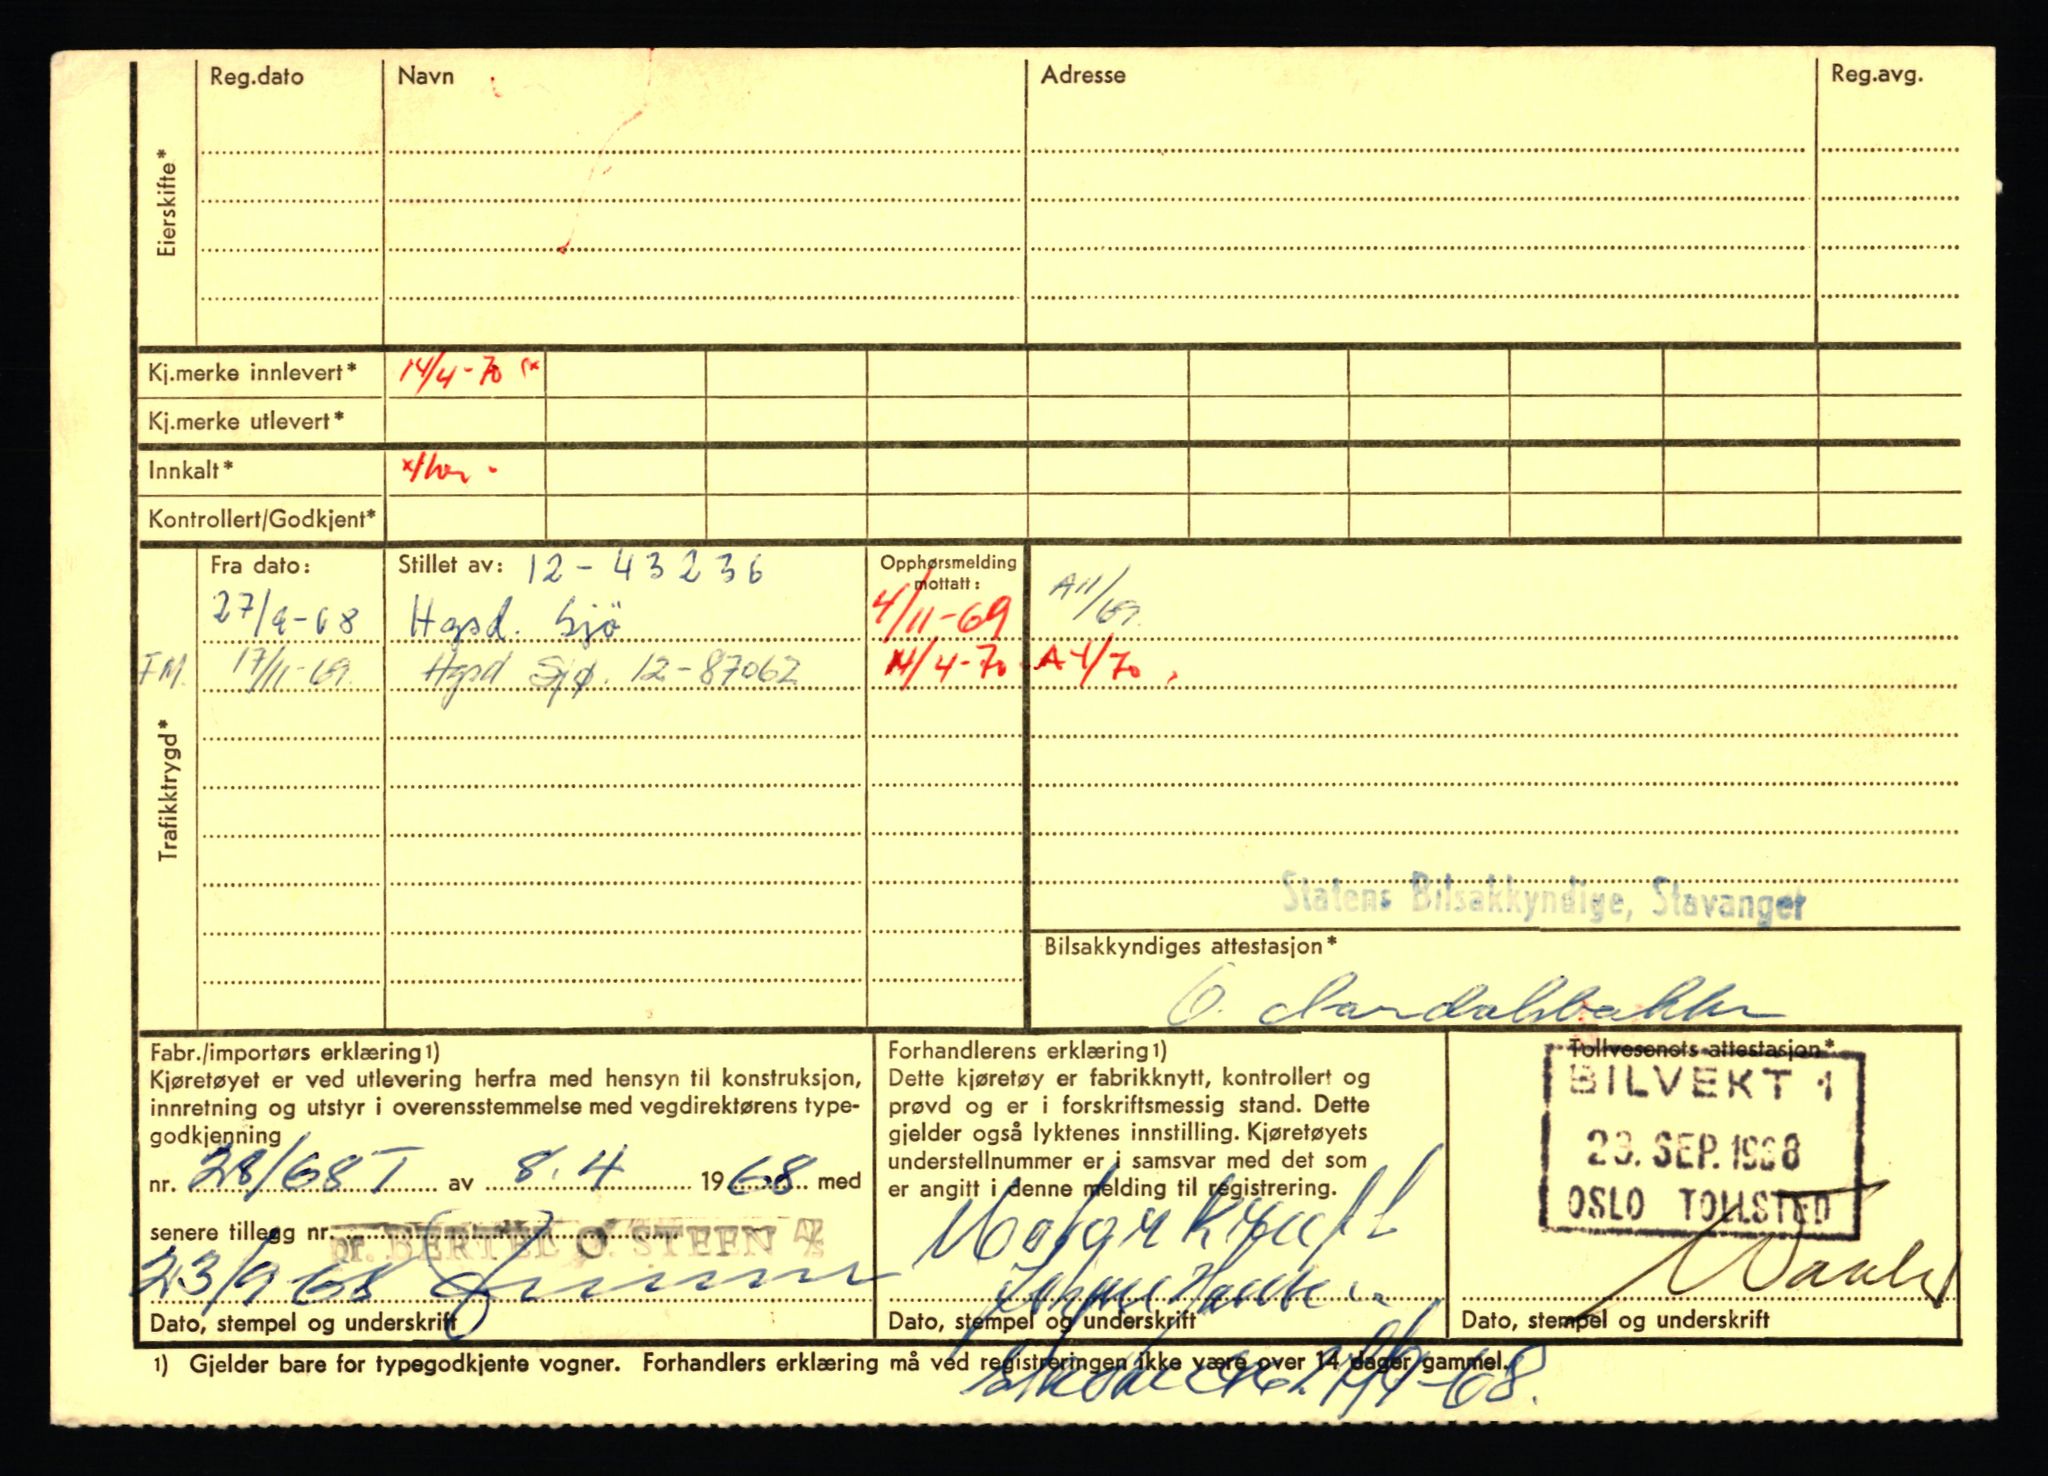 Reg.dato Navn Adresse Reg.avg.
Eierskifte*
Kj.merke innlevert* 14/4-70
Kj.merke utlevert*
Innkalt*
Kontrollert/Godkjent*
Trafikktrygd*
Fra dato: Stillet av: 12-43236 Opphørsmelding mottatt:
27/9-68 Hgsd. Sjö 4/11-69 A11/69.
FM. 17/11-69. Hgsd Sjø. 12-87062 14/4-70 A4/70.
Statens Bilsakkyndige, Stavanger
Bilsakkyndiges attestasjon*
Fabr./importørs erklæring1)
Kjøretøyet er ved utlevering herfra med hensyn til konstruksjon,
innretning og utstyr i overensstemmelse med vegdirektørens type-
godkjenning
nr. 28/68 T av 8.4 1968 med
senere tillegg nr.
pr. BERTEL O. STEEN 4/4
23/9 68
Dato, stempel og underskrift
Forhandlerens erklæring1)
Dette kjøretøy er fabrikknytt, kontrollert og
prøvd og er i forskriftsmessig stand. Dette
gjelder også lyktenes innstilling. Kjøretøyets
understellnummer er i samsvar med det som
er angitt i denne melding til registrering.
Dato, stempel og underskrift
Tollvesenets attestasjon*
BILVEKT 1
23. SEP. 1968
OSLO TOLLSTED
Dato, stempel og underskrift
1) Gjelder bare for typegodkjente vogner. Forhandlers erklæring må ved registreringen ikke være over 14 dager gammel.